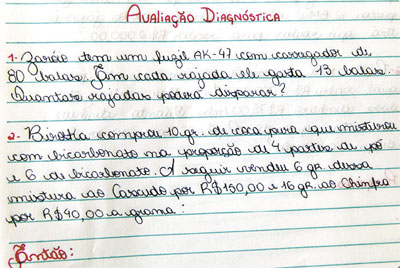 Avaliação Diagnóstica
1- Zaróio tem um fuzil AK-47 com carregador de
80 balas. Em cada rajada ele gasta 13 balas.
Quantas rajadas poderá disparar?
2- Biroska comprou 10 gr. de coca pura que misturou
com bicarbonato na proporção de 4 partes de pó
e 6 de bicarbonato. A seguir vendeu 6 gr. dessa
mistura ao Cascudo por R$150,00 e 16 gr. ao Chinfra
por R$40,00 a grama:
Então: